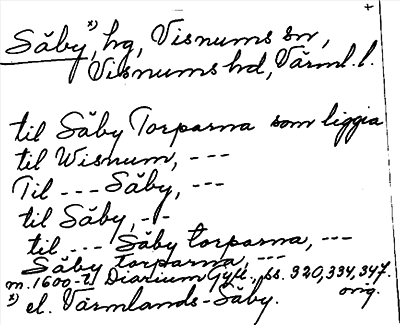 +
Såby x), hg, Visnums sn,
Visnums hd, Värml. l.
til Såby Torparna som liggia
til Wisnum, ---
Til --- Såby, ---
til Såby, --
til --- Såby torparna, ---
Såby torparna, ---
m. 1600-t. Diarium Gyll., ss. 320, 334, 347.
orig.
x) el. Värmlands-Såby.